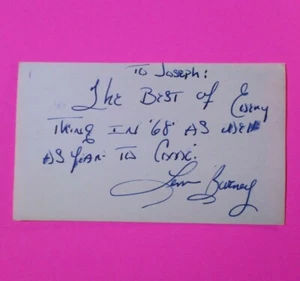 To Joseph:
The Best of Every
Thing In '68 As well
As year To Come.
Lem Barney